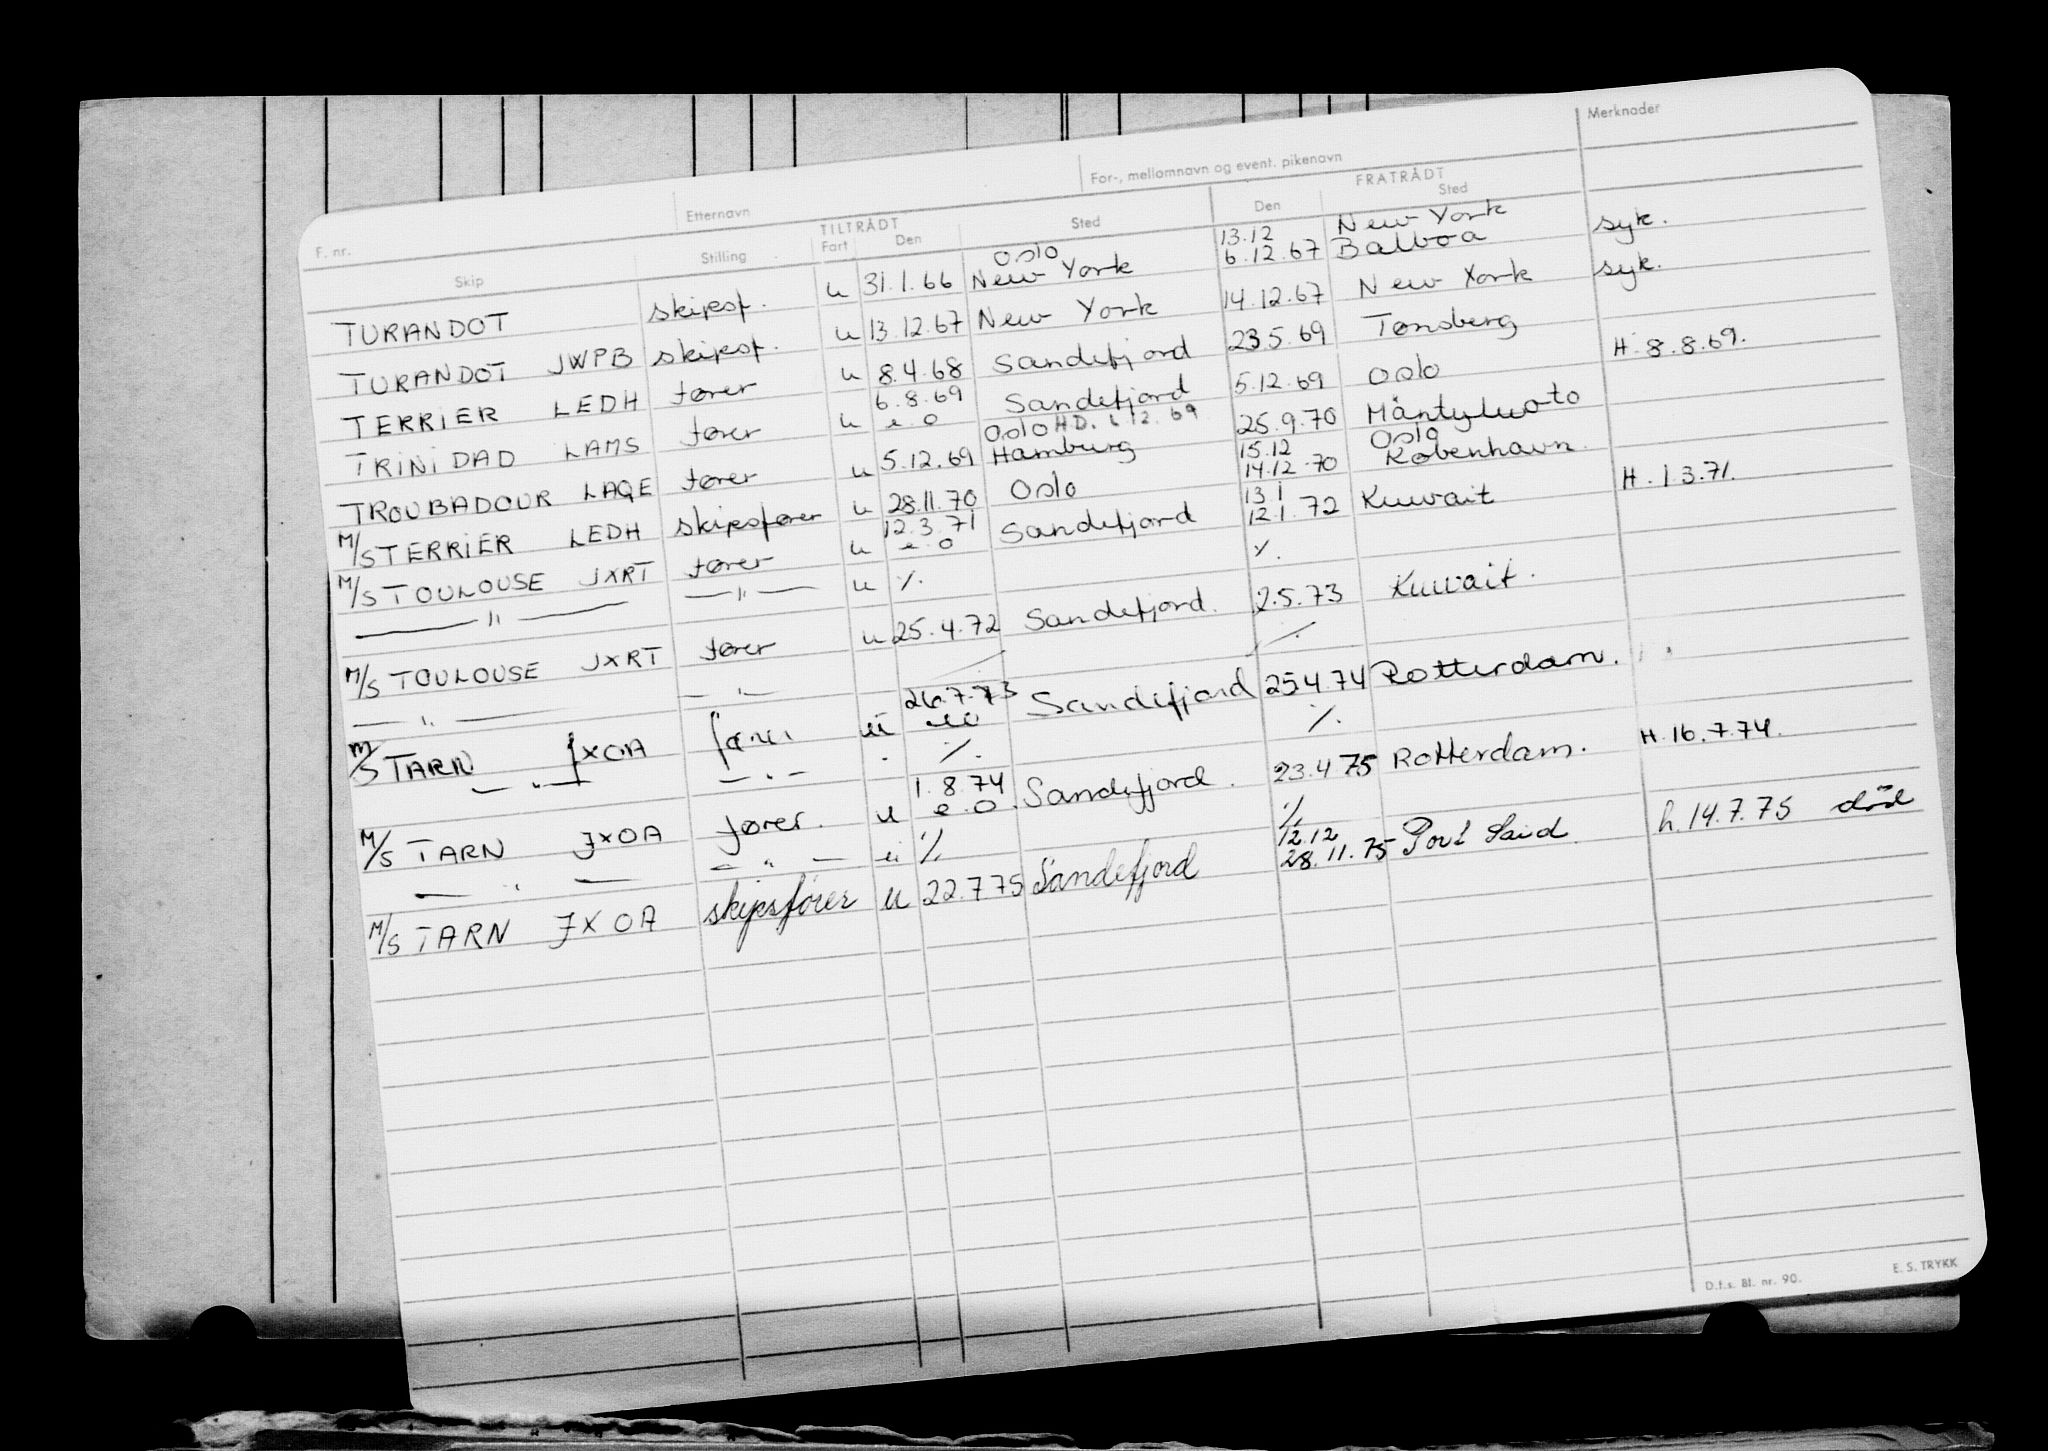 Merknader
For-, mellomnavn og event. pikenavn
Etternavn
F. nr.
TILTRÅDT FRATRÅDT
Skip Stilling Fart Den Sted Den Sted
Oslo 13.12 New York
TURANDOT skipsf. u 31.1.66 New York 6.12.67 Balboa syk.
TURANDOT JWPB skipsf. u 13.12.67 New York 14.12.67 New York syk.
TERRIER LEDH fører u 8.4.68 Sandefjord 23.5.69 Tønsberg
6.8.69
TRINIDAD LAMS fører u e.o Sandefjord 5.12.69 Oslo H. 8.8.69.
Oslo H.D. 12.69
TROUBADOUR LAQE fører u 5.12.69 Hamburg 25.9.70 Mäntyluoto
15.12 Oslo
M/S TERRIER LEDH skipsfører u 28.11.70 Oslo 14.12.70 København.
12.3.71 13.1
M/S TOULOUSE JXRT fører u e.o Sandefjord 12.1.72 Kuwait H. 1.3.71.
— " — — " — u ٪. ٪.
M/S TOULOUSE JXRT fører u 25.4.72 Sandefjord. 2.5.73 Kuwait.
— " — — " —
26.7.73
M/S TARN JXOA fører u eo Sandefjord 25.4.74 Rotterdam.
— " — — " — ٪. ٪.
1.8.74
M/S TARN JXOA fører. u e.o. Sandefjord. 23.4.75 Rotterdam. H. 16.7.74.
— " — — " — u ٪ ٪
12.12
M/S TARN JXOA skipsfører u 22.7.75 Sandefjord 28.11.75 Port Said. h. 14.7.75 død
D.f.s. Bl. nr. 90. E. S. TRYKK